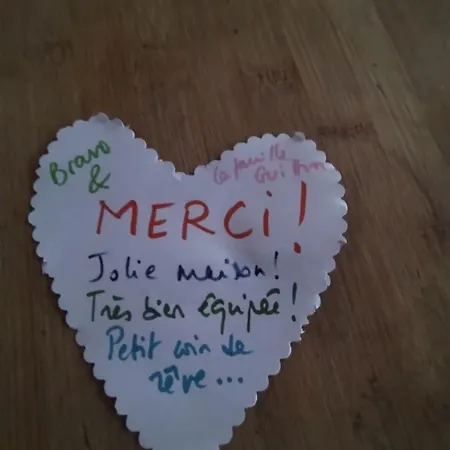 Bravo
&
La famille
MERCI !
Jolie maison !
Très bien équipée !
Petit coin de
rêve...